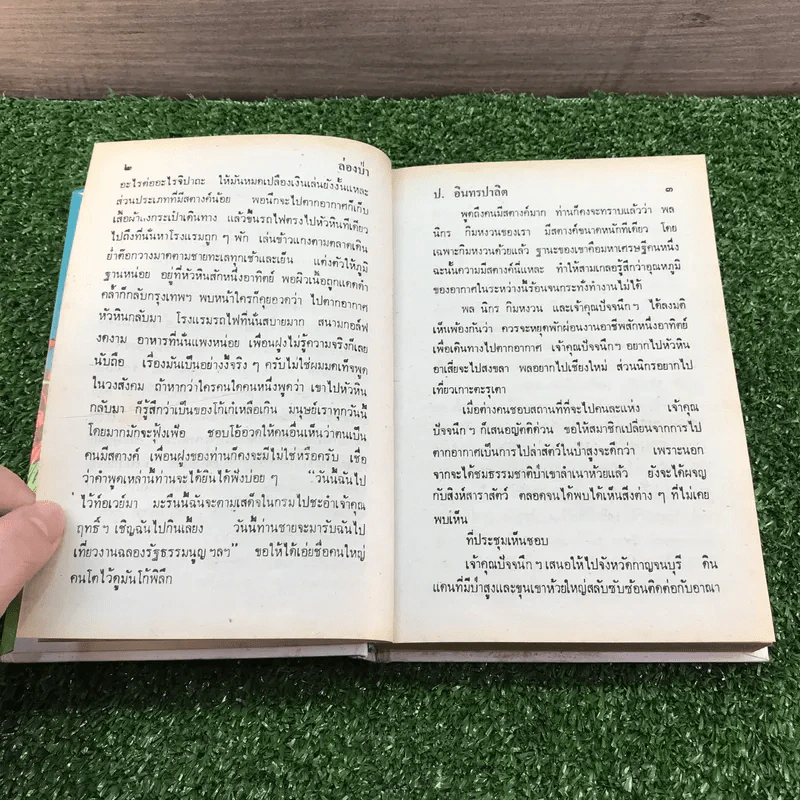 ๒ ล่องป่า
อะไรต่ออะไรจิปาถะ ให้มันหมดเปลืองเงินเล่นยังงั้นแหละ
ส่วนประเภทที่มีสตางค์น้อย พอนึกจะไปตากอากาศก็เก็บ
เสื้อผ้าแงกระเป๋าเดินทาง แล้วขึ้นรถไฟตรงไปหัวหินทีเดียว
ไปถึงที่นั่นหาโรงแรมถูก ๆ พัก เล่นข้าวแกงตามตลาดเดิน
ย่ำต๊อกวางมาดตามชายทะเลทุกเช้าและเย็น แต่งตัวให้ภูมิ
ฐานหน่อย อยู่ที่หัวหินสักหนึ่งอาทิตย์ พอผิวเนื้อถูกแดดดำ
คล้ำก็กลับกรุงเทพฯ พบหน้าใครก็คุยอวดว่า ไปตากอากาศ
หัวหินกลับมา โรงแรมรถไฟที่นั่นสบายมาก สนามกอล์ฟ
งดงาม อาหารที่นั่นแพงหน่อย เพื่อนฝูงไม่รู้ความจริงก็เลย
นับถือ เรื่องมันเป็นอย่างงี้จริง ๆ ครับไม่ใช่ผมมดเท็จพูด
ในวงสังคม ถ้าหากว่าใครคนใดคนหนึ่งพูดว่า เขาไปหัวหิน
กลับมา ก็รู้สึกว่าเป็นของโก้เก๋เหลือเกิน มนุษย์เราทุกวันนี้
โดยมากมักจะฟุ้งเฟ้อ ชอบโอ้อวดให้คนอื่นเห็นว่าตนเป็น
คนมีสตางค์ เพื่อนฝูงของท่านก็คงจะมีไม่ใช่หรือครับ เชื่อ
ว่าคำพูดเหล่านี้ท่านจะได้ยินได้ฟังบ่อย ๆ "วันนี้ฉันไป
ไว้ท์อเวย์มา มะรืนนี้ฉันจะตามเสด็จในกรมไปชะอำเจ้าคุณ
ฤทธิ์ฯ เชิญฉันไปกินเลี้ยง วันนี้ท่านชายจะมารับฉันไป
เที่ยวงานฉลองรัฐธรรมนูญ ฯลฯ" ขอให้ได้เอ่ยชื่อคนใหญ่
คนโตไว้ดูมันโก้พิลึก
ป. อินทรปาลิต ๓
พูดถึงคนมีสตางค์มาก ท่านก็คงจะทราบแล้วว่า พล
นิกร กิมหงวนของเรา มีสตางค์ขนาดหนักทีเดียว โดย
เฉพาะกิมหงวนด้วยแล้ว ฐานะของเขาคือมหาเศรษฐีคนหนึ่ง
ฉะนั้นความมีสตางค์นี่แหละ ทำให้สามเกลอรู้สึกว่าอุณหภูมิ
ของอากาศในระหว่างนี้ร้อนจนกระทั่งทำงานไม่ได้
พล นิกร กิมหงวน และเจ้าคุณปัจจนึก ฯ ได้ลงมติ
เห็นพ้องกันว่า ควรจะหยุดพักผ่อนงานอาชีพสักหนึ่งอาทิตย์
เพื่อเดินทางไปตากอากาศ เจ้าคุณปัจจนึก ฯ อยากไปหัวหิน
อาเสี่ยจะไปสงขลา พลอยากไปเชียงใหม่ ส่วนนิกรอยากไป
เที่ยวเกาะตะรุเตา
เมื่อต่างคนชอบสถานที่ที่จะไปคนละแห่ง เจ้าคุณ
ปัจจนึก ฯ ก็เสนอญัตติด่วน ขอให้สมาชิกเปลี่ยนจากการไป
ตากอากาศเป็นการไปล่าสัตว์ในป่าสูงจะดีกว่า เพราะนอก
จากจะได้ชมธรรมชาติป่าเขาลำเนาห้วยแล้ว ยังจะได้ผจญ
กับสิงห์สาราสัตว์ ตลอดจนได้พบได้เห็นสิ่งต่าง ๆ ที่ไม่เคย
พบเห็น
ที่ประชุมเห็นชอบ
เจ้าคุณปัจจนึก ฯ เสนอให้ไปจังหวัดกาญจนบุรี ดิน
แดนที่มีป่าสูงและขุนเขาห้วยใหญ่สลับซับซ้อนติดต่อกับอาณา